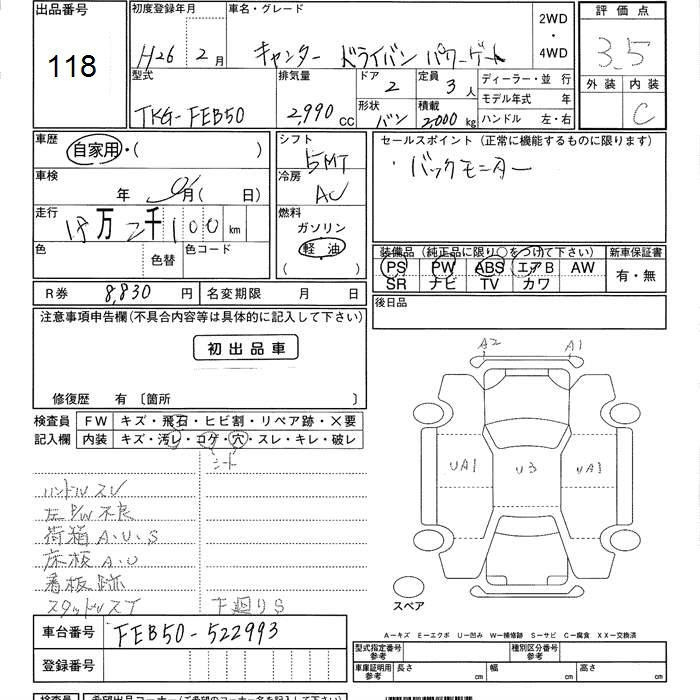 出品番号 初度登録年月 車名・グレード 2WD・4WD 評価点
118 H26年 2月 キャンター ドライバン パワーゲート 3.5
型式 排気量 ドア 2 定員 3人 ディーラー・並行 外装 内装
TKG-FEB50 2,990cc 形状 バン 積載 2,000kg モデル年式 年 C
ハンドル 左・右
車歴 自家用・( ) シフト 5MT セールスポイント(正常に機能するものに限ります)
・バックモニター
車検 年 月( 日) 冷房 AC
走行 18万2千100km 燃料 ガソリン
軽油
( )
色 色替 色コード
装備品(純正品に限り○をつけて下さい) 新車保証書
PS PW ABS エアB AW 有・無
SR ナビ TV カワ
R券 8,830円 名変期限 月 日 後日品
注意事項申告欄(不具合内容等は具体的に記入して下さい)
初出品車
修復歴 有 〔箇所 〕
検査員 FW キズ・飛石・ヒビ割・リペア跡・×要
記入欄 内装 キズ・汚レ・コゲ・穴・スレ・キレ・破レ
シート
A2 A1
UA1 U3 UA1
ハンドルスレ
左P/W不良
荷箱A.U.S
床板A.U
看板跡
スタッドレスT 下廻りS
スペア
車台番号 FEB50-522993
A-キズ E-エクボ U-凹み W-補修跡 S-サビ C-腐食 XX-交換済
登録番号
型式指定番号 参考 種別区分番号 参考
車庫証明用 参考 長さ cm 幅 cm 高さ cm
検査員 希望出品コーナー(ご希望のコーナー名を記入して下さい)